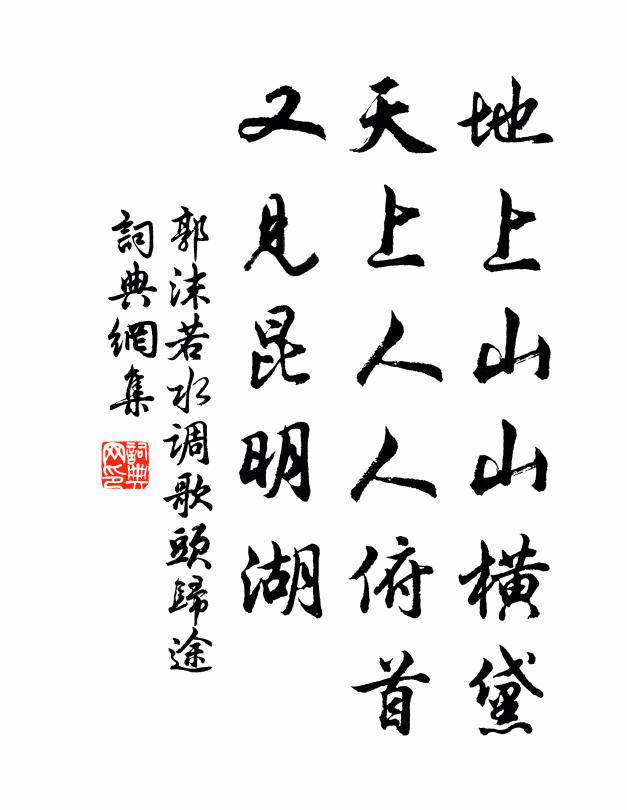 地上山山橫黛
天上人人俯首
又見昆明湖
郭沫若水调歌頭歸途
詞典網集
詞典网印